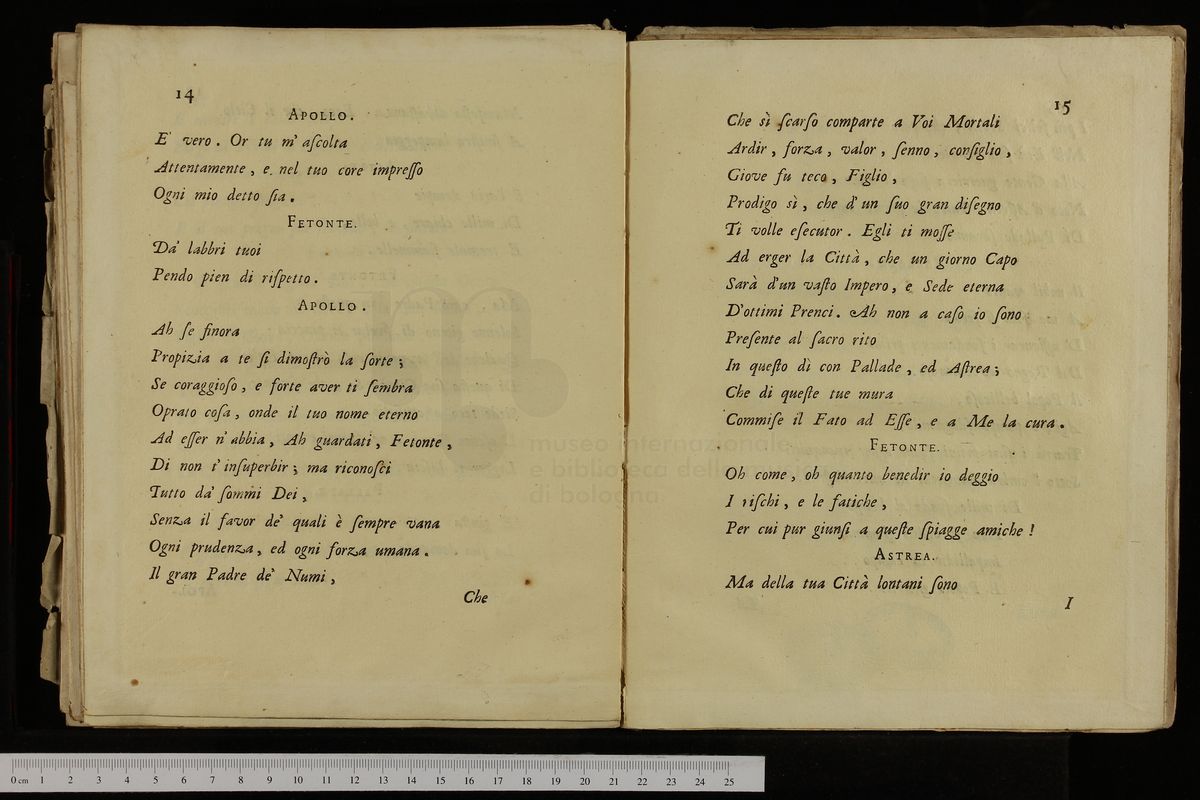 14
APOLLO.
E' vero. Or tu m' aſcolta
Attentamente, e nel tuo core impreſſo
Ogni mio detto ſia.
FETONTE.
Da' labbri tuoi
Pendo pien di riſpetto.
APOLLO.
Ah ſe finora
Propizia a te ſi dimoſtrò la ſorte;
Se coraggioſo, e forte aver ti ſembra
Oprato coſa, onde il tuo nome eterno
Ad eſſer n' abbia, Ah guardati, Fetonte,
Di non t' inſuperbir; ma riconoſci
Tutto da' ſommi Dei,
Senza il favor de' quali è ſempre vana
Ogni prudenza, ed ogni forza umana.
Il gran Padre de' Numi,
Che
15
Che sì ſcarſo comparte a Voi Mortali
Ardir, forza, valor, ſenno, conſiglio,
Giove fu teco, Figlio,
Prodigo sì, che d' un ſuo gran diſegno
Ti volle eſecutor. Egli ti moſſe
Ad erger la Città, che un giorno Capo
Sarà d'un vaſto Impero, e Sede eterna
D'ottimi Prenci. Ah non a caſo io ſono
Preſente al ſacro rito
In queſto dì con Pallade, ed Aſtrea;
Che di queſte tue mura
Commiſe il Fato ad Eſſe, e a Me la cura.
FETONTE.
Oh come, oh quanto benedir io deggio
I riſchi, e le fatiche,
Per cui pur giunſi a queſte ſpiagge amiche!
ASTREA.
Ma della tua Città lontani ſono
I
museo internazionale
e biblioteca della musica
di bologna
0 cm 1 2 3 4 5 6 7 8 9 10 11 12 13 14 15 16 17 18 19 20 21 22 23 24 25